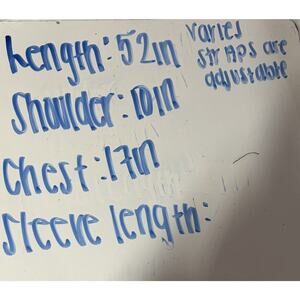 Length: 52in
varies
straps are
adjustable
Shoulder: 10in
Chest: 17in
Sleeve length: